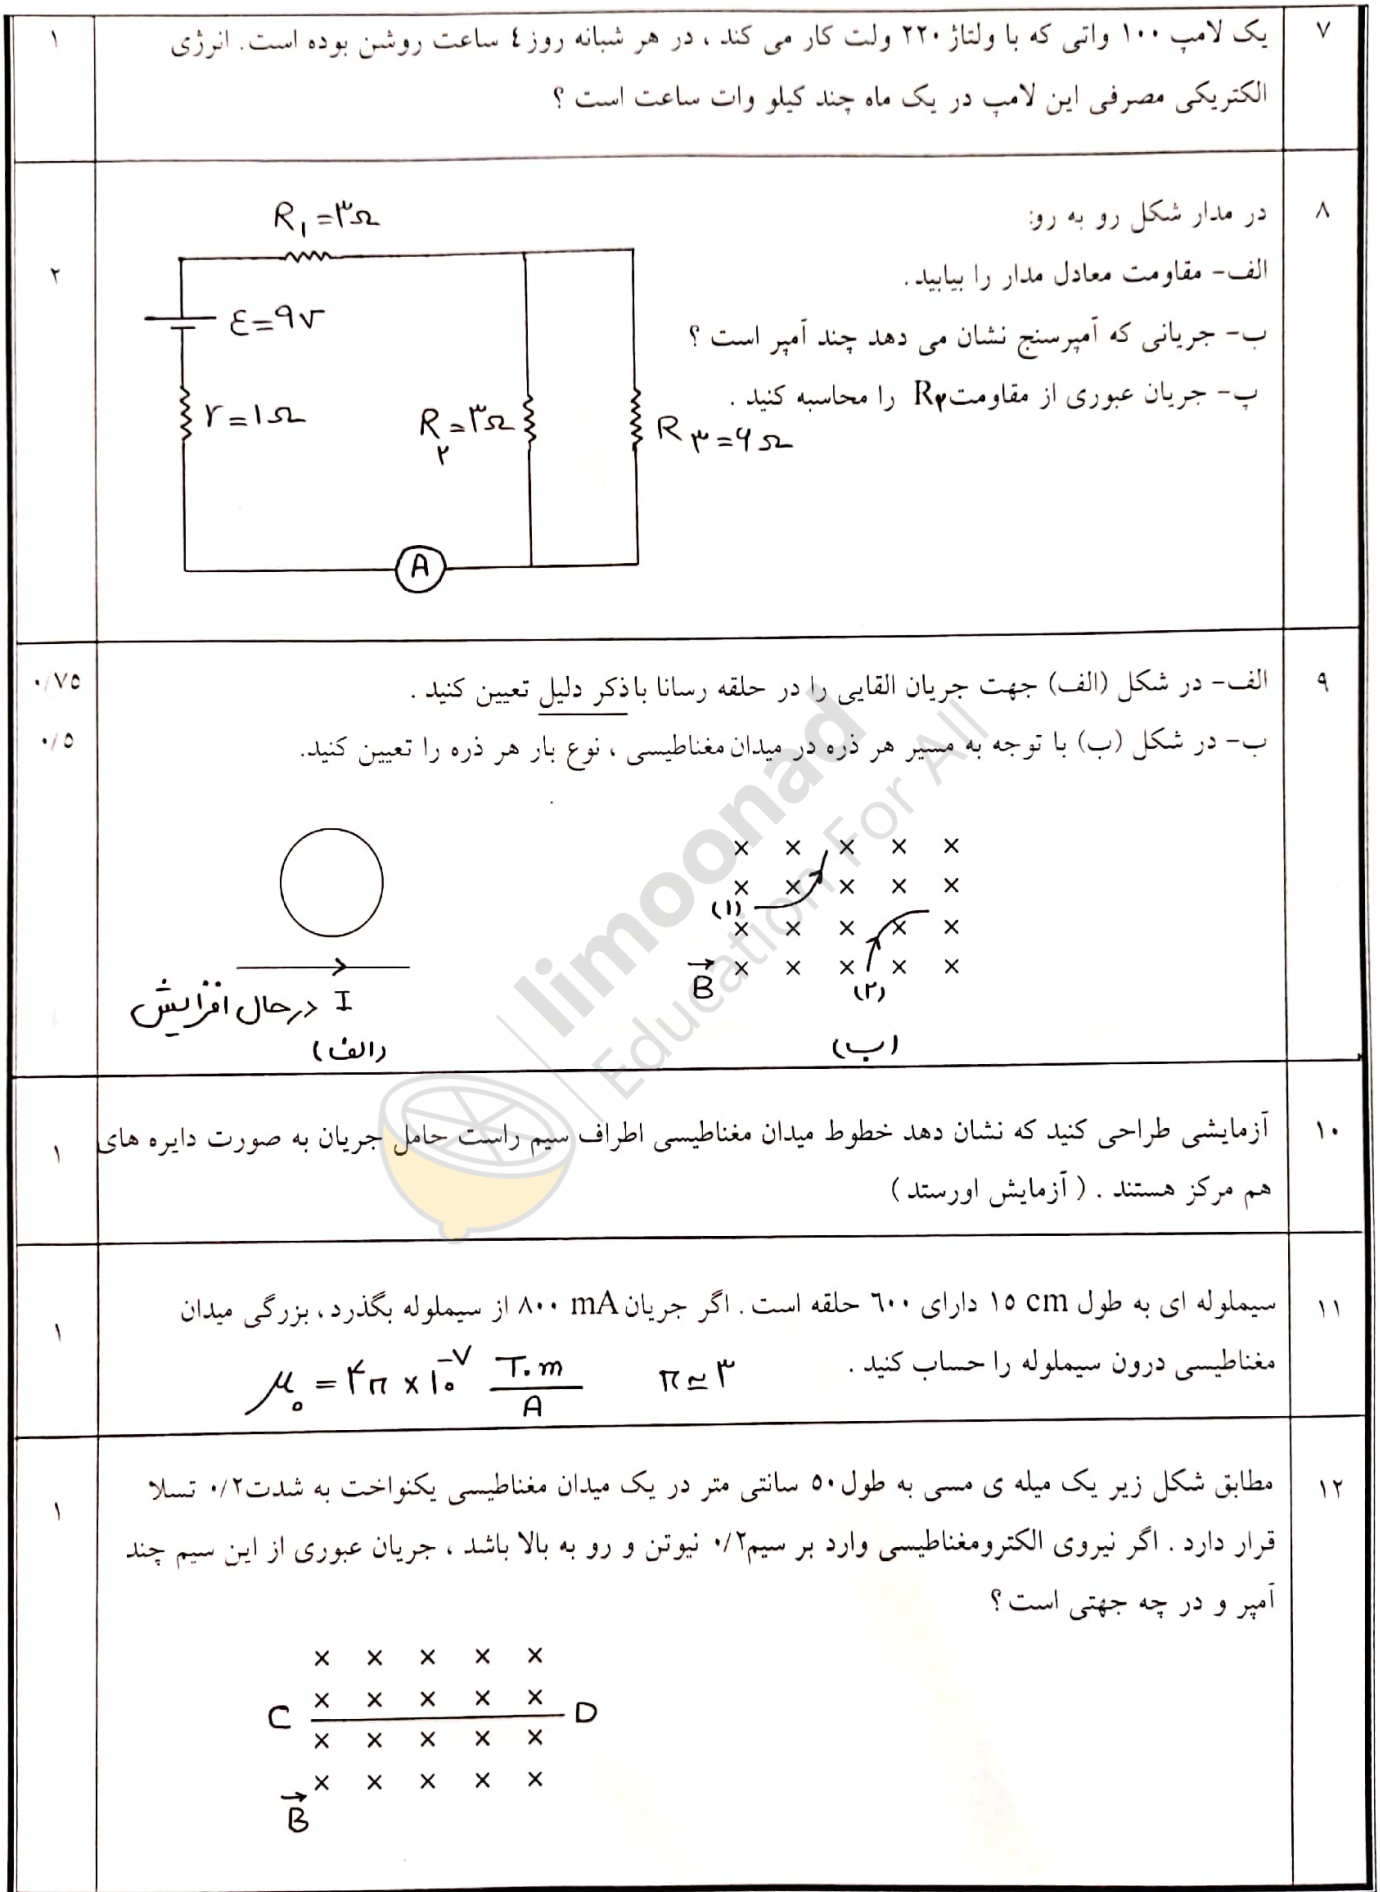 ۷ یک لامپ ۱۰۰ واتی که با ولتاژ ۲۲۰ ولت کار می کند ، در هر شبانه روز ٤ ساعت روشن بوده است. انرژی ۱
الکتریکی مصرفی این لامپ در یک ماه چند کیلو وات ساعت است ؟
۸ در مدار شکل رو به رو: ۲
الف- مقاومت معادل مدار را بیابید.
ب- جریانی که آمپرسنج نشان می دهد چند آمپر است ؟
پ- جریان عبوری از مقاومت R۲ را محاسبه کنید .
R۱=۳Ω
ε=9v
r=۱Ω
R۲=۳Ω
R۳=۶Ω
A
۹ الف- در شکل (الف) جهت جریان القایی را در حلقه رسانا با ذکر دلیل تعیین کنید . ۰/۷۵
ب- در شکل (ب) با توجه به مسیر هر ذره در میدان مغناطیسی ، نوع بار هر ذره را تعیین کنید. ۰/۵
× × × × ×
× × × × ×
(۱)
× × × × ×
× × × × ×
B
(۲)
(ب)
I درحال افزایش
(الف)
limoonad
Education For All
۱۰ آزمایشی طراحی کنید که نشان دهد خطوط میدان مغناطیسی اطراف سیم راست حامل جریان به صورت دایره های ۱
هم مرکز هستند . ( آزمایش اورستد )
۱۱ سیملوله ای به طول ۱۵ cm دارای ٦۰۰ حلقه است . اگر جریان ۸۰۰ mA از سیملوله بگذرد ، بزرگی میدان ۱
مغناطیسی درون سیملوله را حساب کنید .
μ۰ = ۴π × ۱۰^-۷ T.m/A π≃۳
۱۲ مطابق شکل زیر یک میله ی مسی به طول ۵۰ سانتی متر در یک میدان مغناطیسی یکنواخت به شدت ۰/۲ تسلا ۱
قرار دارد . اگر نیروی الکترومغناطیسی وارد بر سیم ۰/۲ نیوتن و رو به بالا باشد ، جریان عبوری از این سیم چند
آمپر و در چه جهتی است ؟
× × × × ×
× × × × ×
C D
× × × × ×
× × × × ×
B